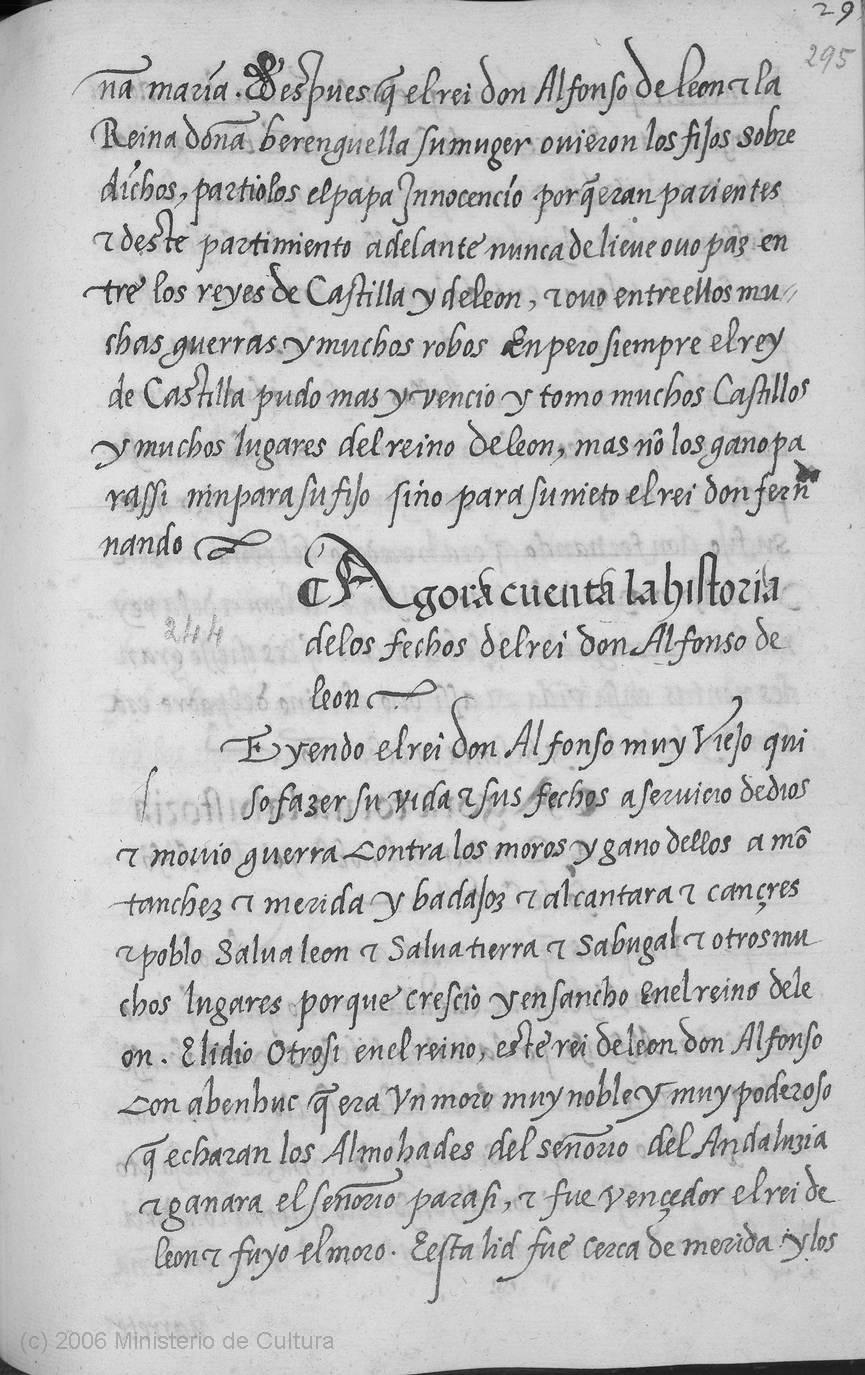 29
295
ña maria. Despues q̃ el rei don Alfonso de leon τ la
Reina doña berenguella su muger ovieron los fijos sobre
dichos, partiolos el papa Innocencio porq̃ eran parientes
τ deste partimiento adelante nunca de lieve ovo paz en
tre los reyes de Castilla y de leon, τ ovo entre ellos mu-
chas guerras y muchos robos Enpero siempre el rey
de Castilla pudo mas y vencio y tomo muchos Castillos
y muchos lugares del reino de leon, mas nõ los gano pa
rassi nin para su fijo sino para su nieto el rei don fern
nando
¶ Agora cuenta la historia
244
delos fechos del rei don Alfonso de
leon
Eyendo el rei don Alfonso muy Viejo qui
so fazer su vida τ sus fechos a servicio de dios
τ movio guerra contra los moros y gano dellos a mõ
tanchez τ merida y badajoz τ alcantara τ cançres
τ poblo Salva leon τ Salvatierra τ Sabugal τ otros mu
chos lugares porque crescio y ensancho en el reino de le
on. E lidio Otrosi en el reino, este rei de leon don Alfonso
Con abenhuc q̃ era Vn moro muy noble y muy poderoso
q̃ echaran los Almohades del señorio del Andaluzia
τ ganara el señorio para si, τ fue vençedor el rei de
leon τ fuyo el moro. E esta lid fue cerca de merida y los
(c) 2006 Ministerio de Cultura